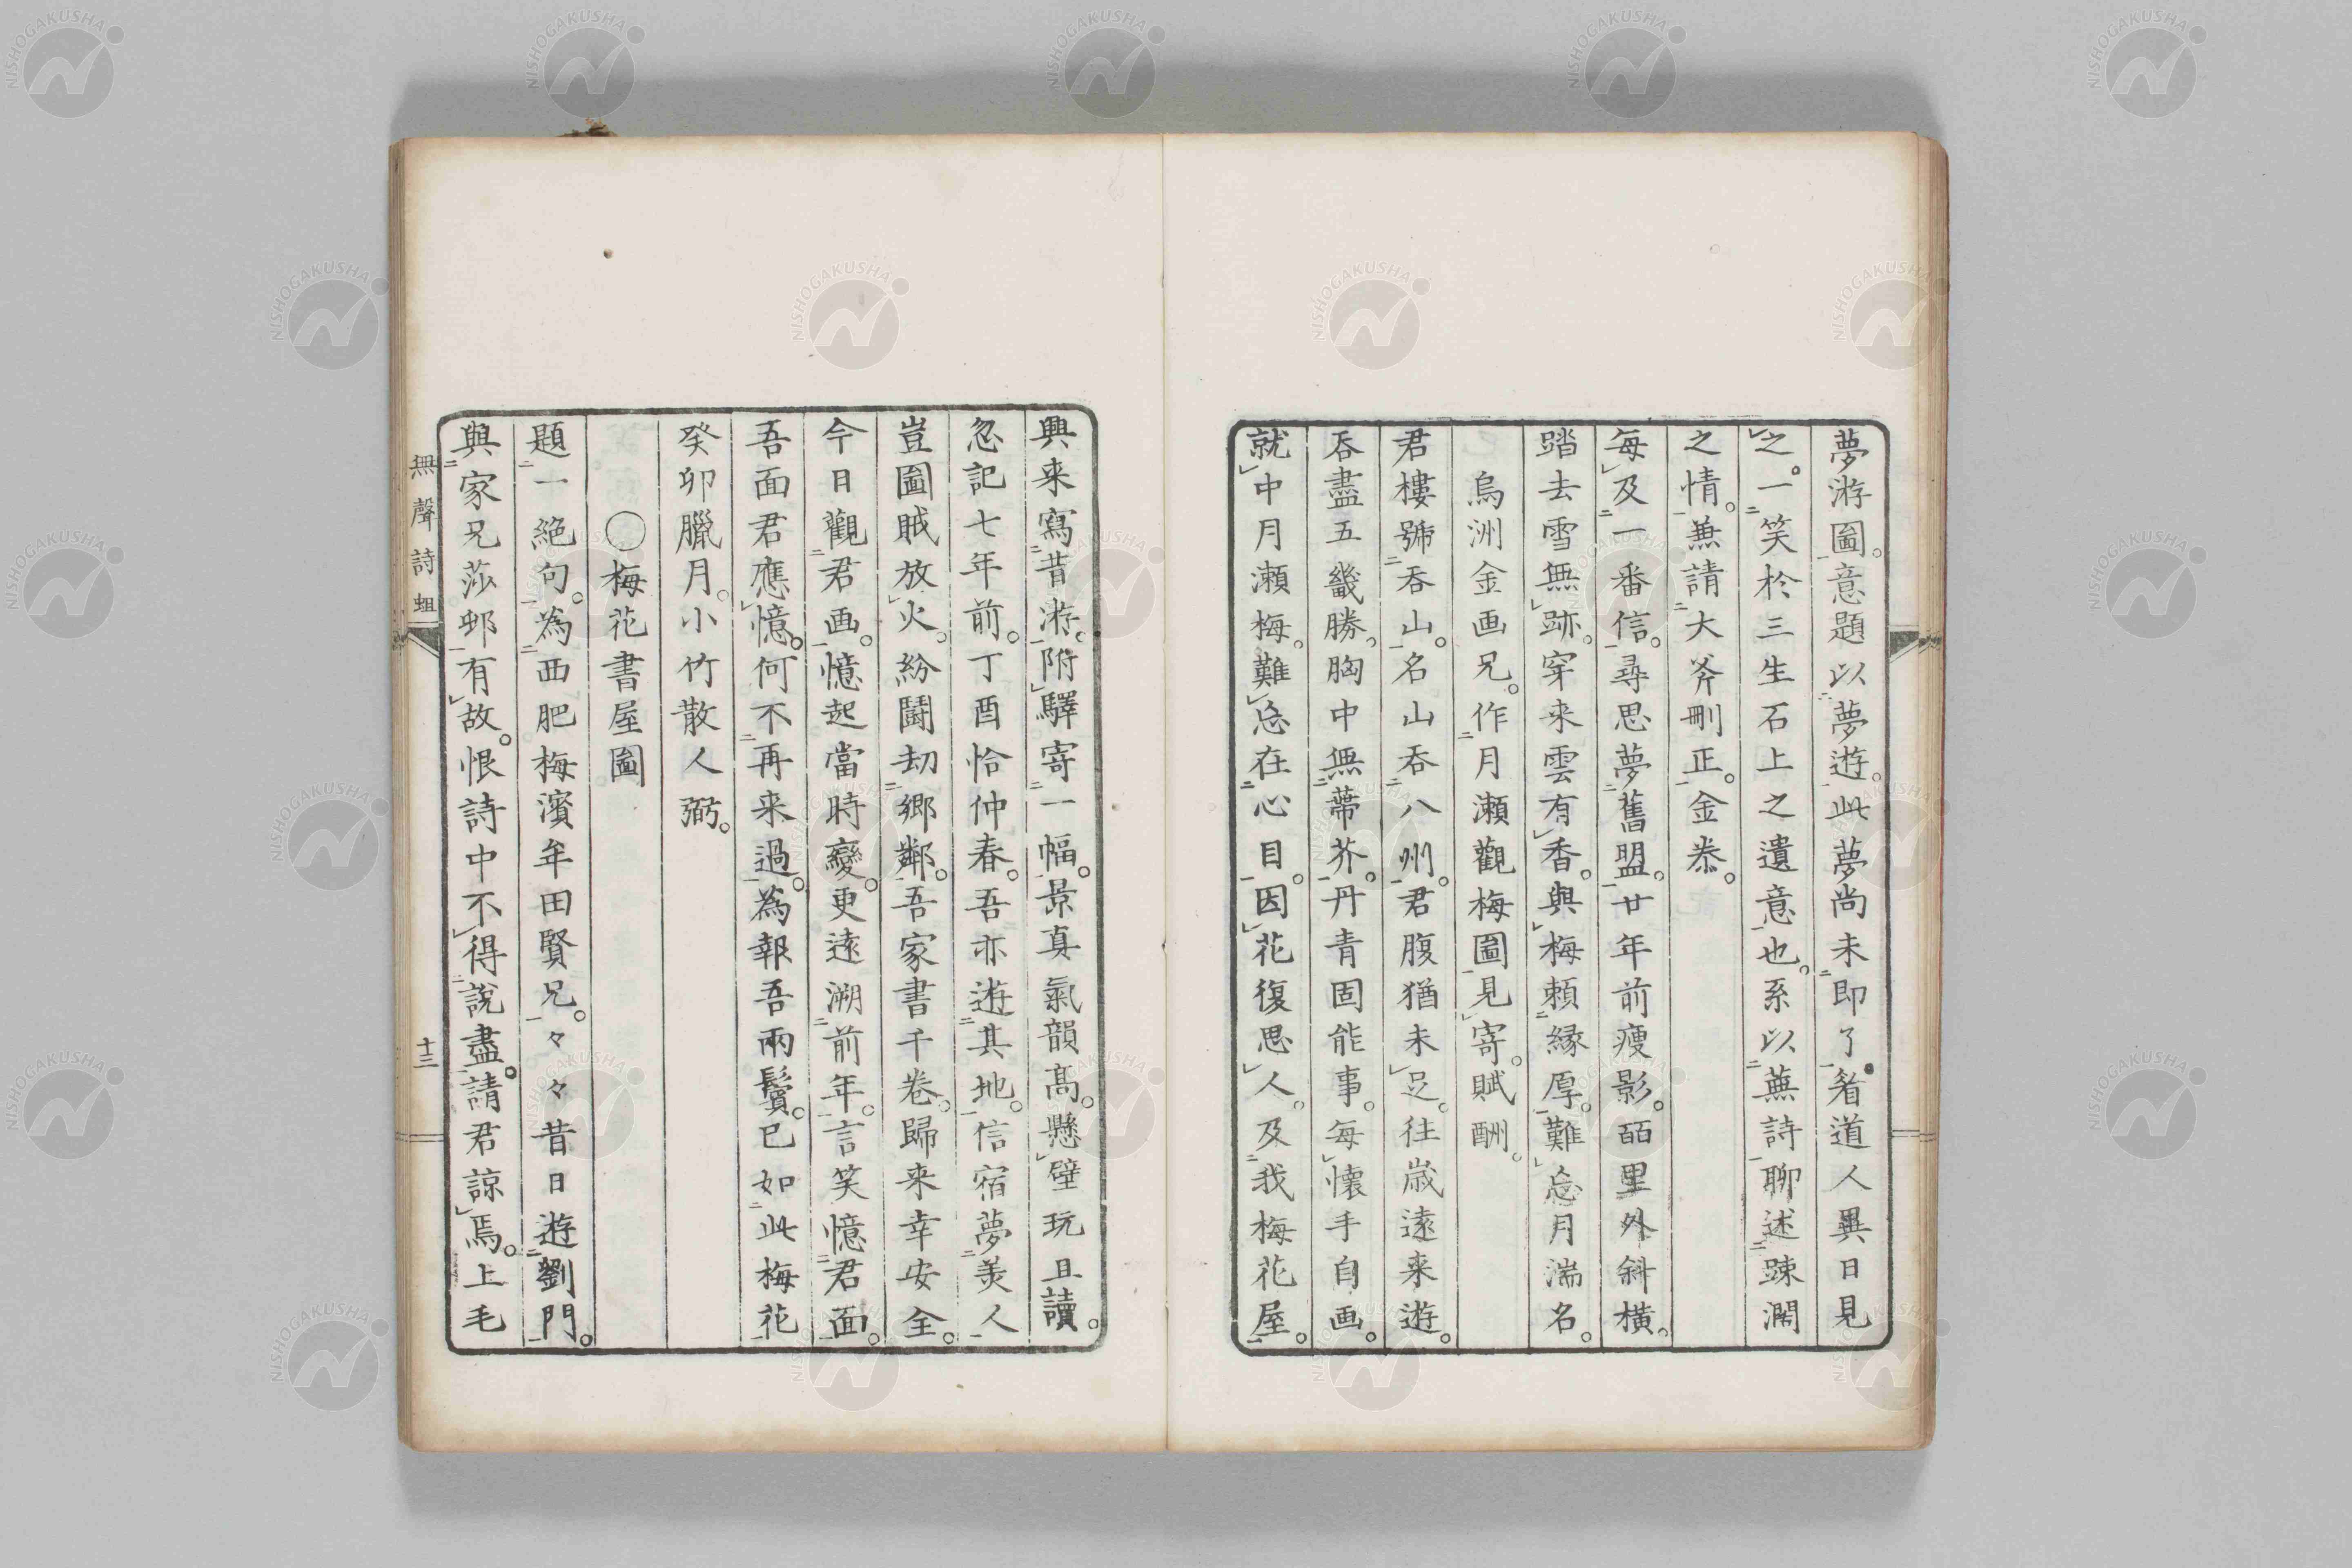 夢游圖。意題以夢遊。此夢尚未即了。看道人異日見
之。一笑於三生石上之遺意也。系以蕪詩聊述疎濶
之情。兼請大斧刪正。金㳟。
每及一番信。尋思夢舊盟。廿年前瘦影。百里外斜横。
踏去雪無跡。穿来雲有香。與梅頼縁厚。難忘月湍名。
烏洲金画兄。作月瀬觀梅圖見寄。賦酬。
君樓號吞山。名山吞八州。君腹猶未足。往歳遠来遊。
吞盡五畿勝。胸中無蔕芥。丹青固能事。毎懐手自画。
就中月瀬梅。難忘在心目。因花復思人。及我梅花屋。
興来寫昔游。附驛寄一幅。景真氣韻高。懸壁玩且讀。
忽記七年前。丁酉恰仲春。吾亦遊其地。信宿夢美人
豈圖賊放火。紛鬪劫鄉鄰。吾家書千卷。歸来幸安全。
今日觀君画。憶起當時變。更遠溯前年。言笑憶君面。
吾面君應憶。何不再来過。為報吾兩鬢。已如此梅花
癸卯臘月。小竹散人弼。
○梅花書屋圖
題一絶句。為西肥梅濱牟田賢兄。々々昔日遊劉門。
與家兄莎邨有故。恨詩中不得說盡。請君諒焉。上毛
無聲詩蛆
十三
NISHOGAKUSHA